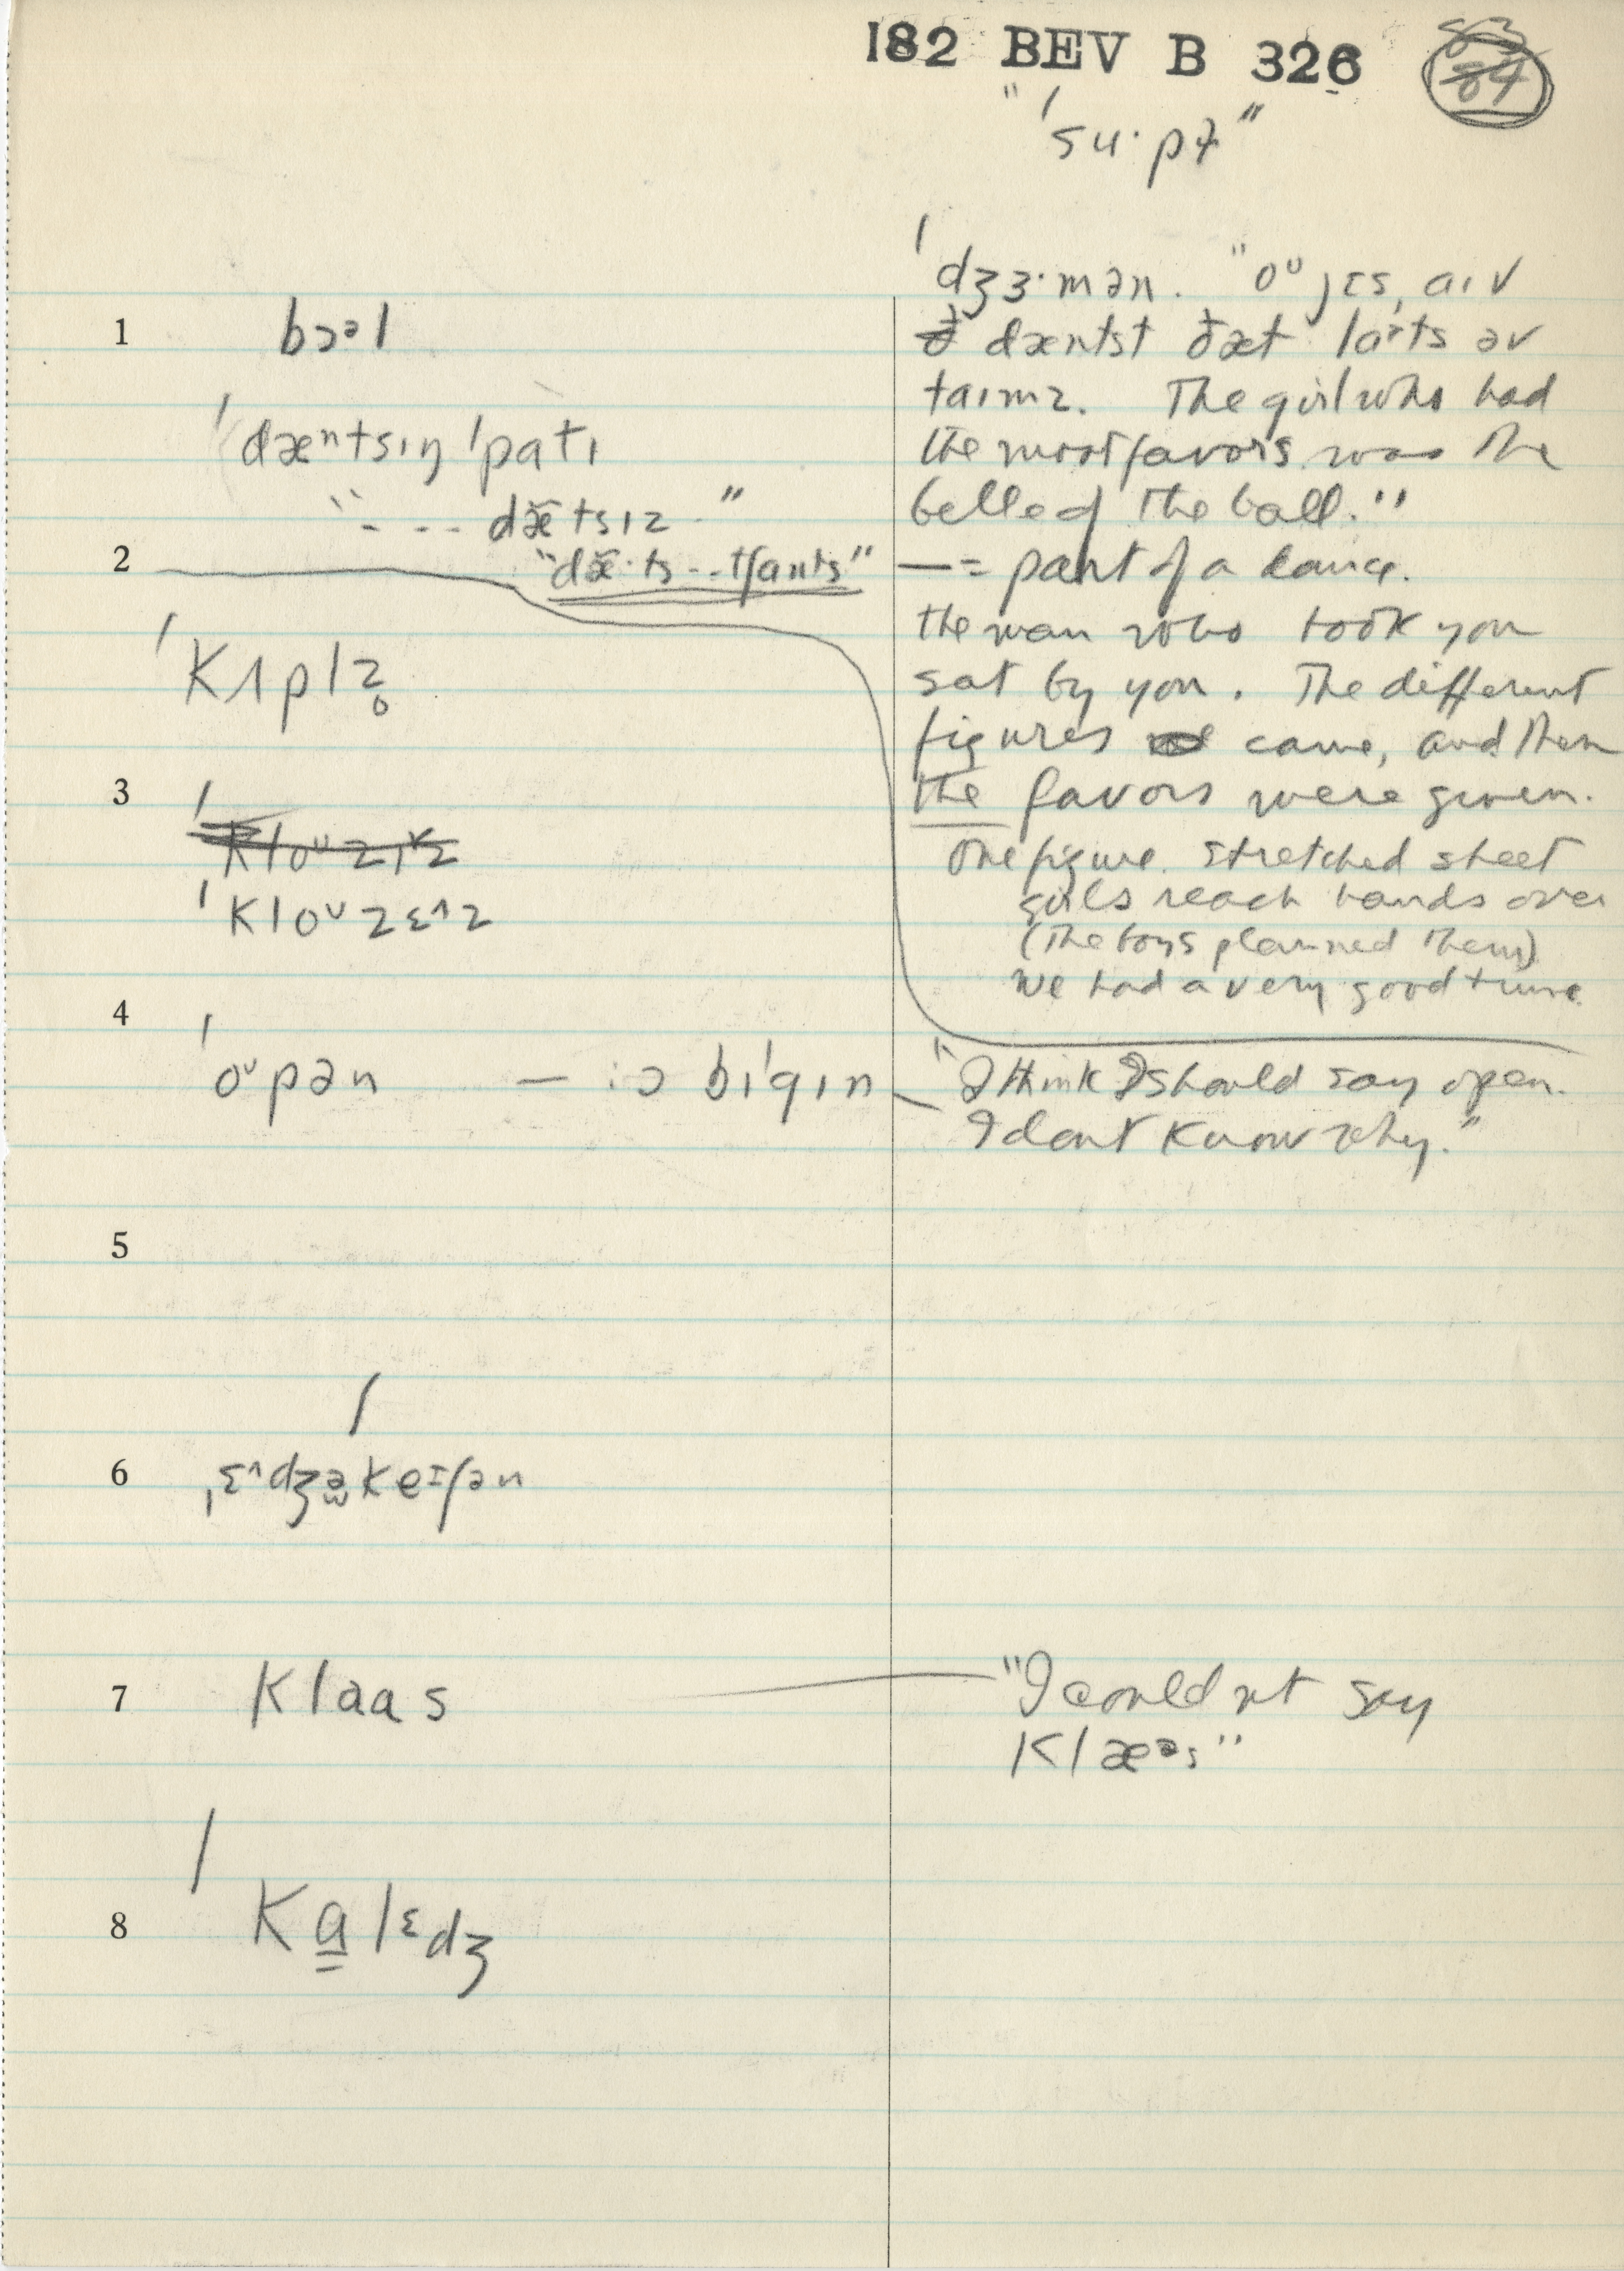 182 BEV B 326 84
"ˈsu·pɚ"
ˈdʒɜ·mən. "oᵁ jɛs, aɪv
1 bɔᵊl
dæntst ðæt laˑts əv
taɪmz. The girl who had
ˈdæⁿtsɪŋ ˈpatɪ
the most favors was the
"- - - dæ̃tsɪz"
belle of the ball."
2 "dæ̃·ts - - tʃants"
— = part of a dance.
the man who took you
ˈkʌplz̥
sat by you. The different
figures came, and then
3
the favors were given.
ˈkloᵁzɪ^z
One figure. stretched sheet
ˈkloᵁzɛ^z
girls reach hands over
(The boys planned them)
we had a very good time
4 ˈoᵁpən — ɪɔ bɪˈgɪn
"I think I should say open.
I dont know why."
5
6 ˌɛ^dʒəkeɪʃən
7 klaas
"I could nt say
klæᵊs"
8 ˈkɑlɛdʒ